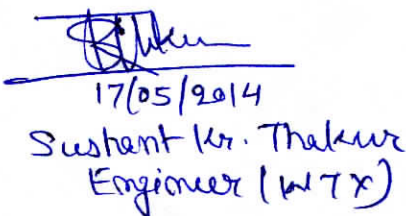 17/05/2014
Sushant Kr. Thakur
Engineer (WTX)